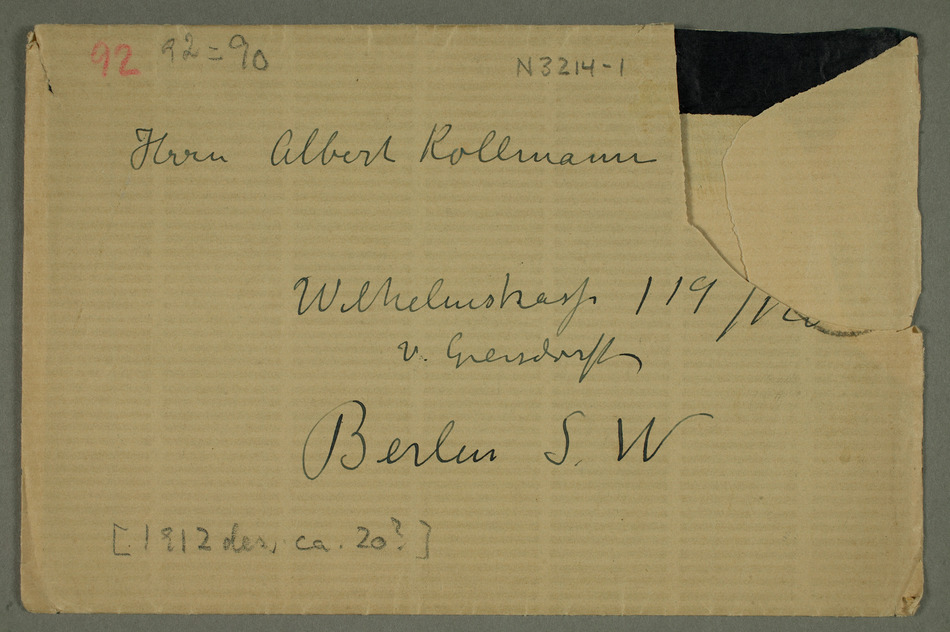 92 92=90 N3214-1
Herrn Albert Kollmann
Wilhelmstrasse 119/
v. Gersdorff
Berlin S. W
[1912 des, ca. 20?]